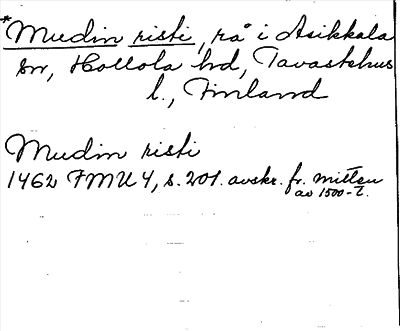 *Mudin risti, rå i Asikkala
sn, Hollola hd, Tavastehus
l., Finland
Mudin risti
1462 FMU 4, s. 201. avskr. fr. mitten
av 1500-t.